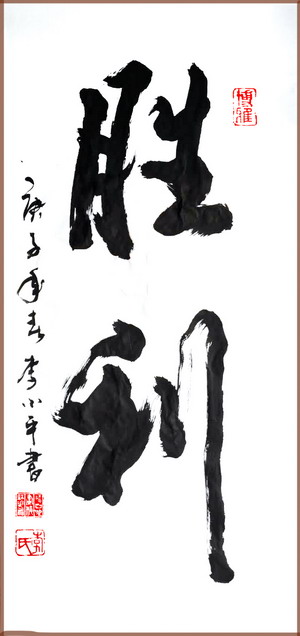 胜利
庚子年春李小平书